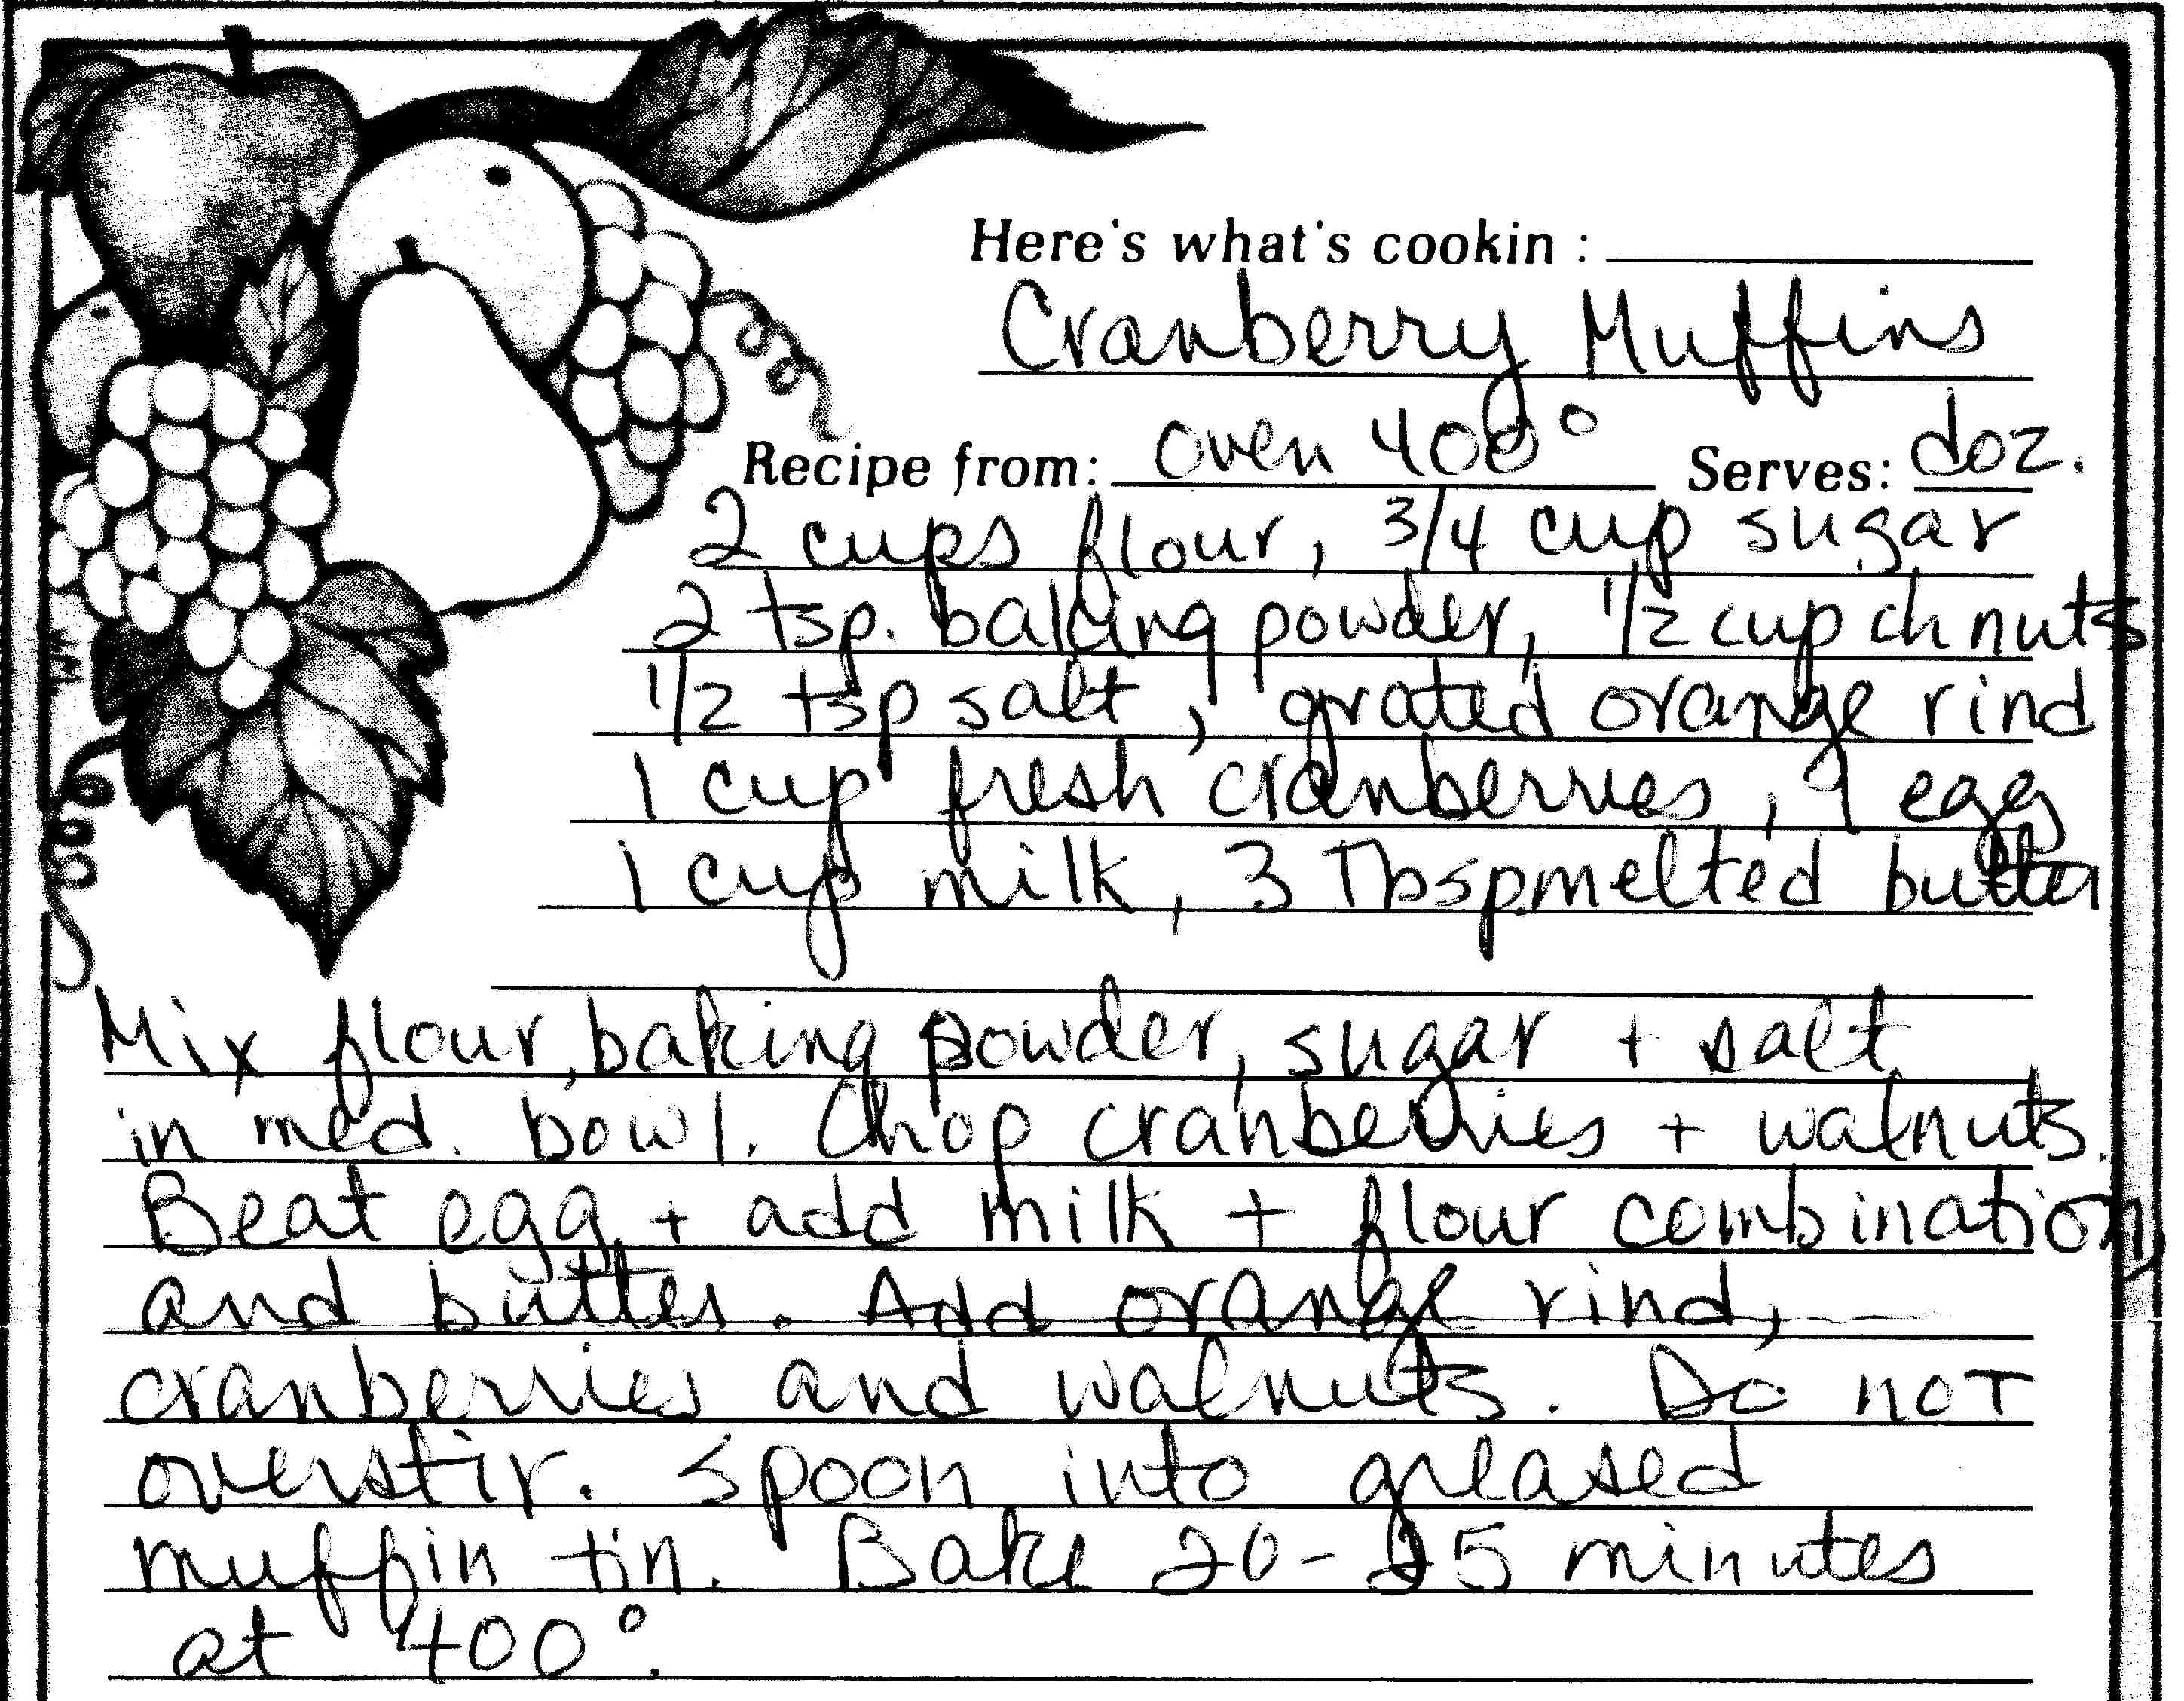 Here's what's cookin :
Cranberry Muffins
Recipe from: oven 400° Serves: doz.
2 cups flour, 3/4 cup sugar
2 tsp. baking powder, 1/2 cup ch nuts
1/2 tsp salt, grated orange rind
1 cup fresh cranberries, 1 egg
1 cup milk, 3 Tbsp melted butter
Mix flour, baking powder, sugar + salt
in med. bowl. Chop cranberries + walnuts.
Beat egg + add milk + flour combination,
and butter. Add orange rind,
cranberries and walnuts. Do not
overstir. Spoon into greased
muffin tin. Bake 20-25 minutes
at 400°.